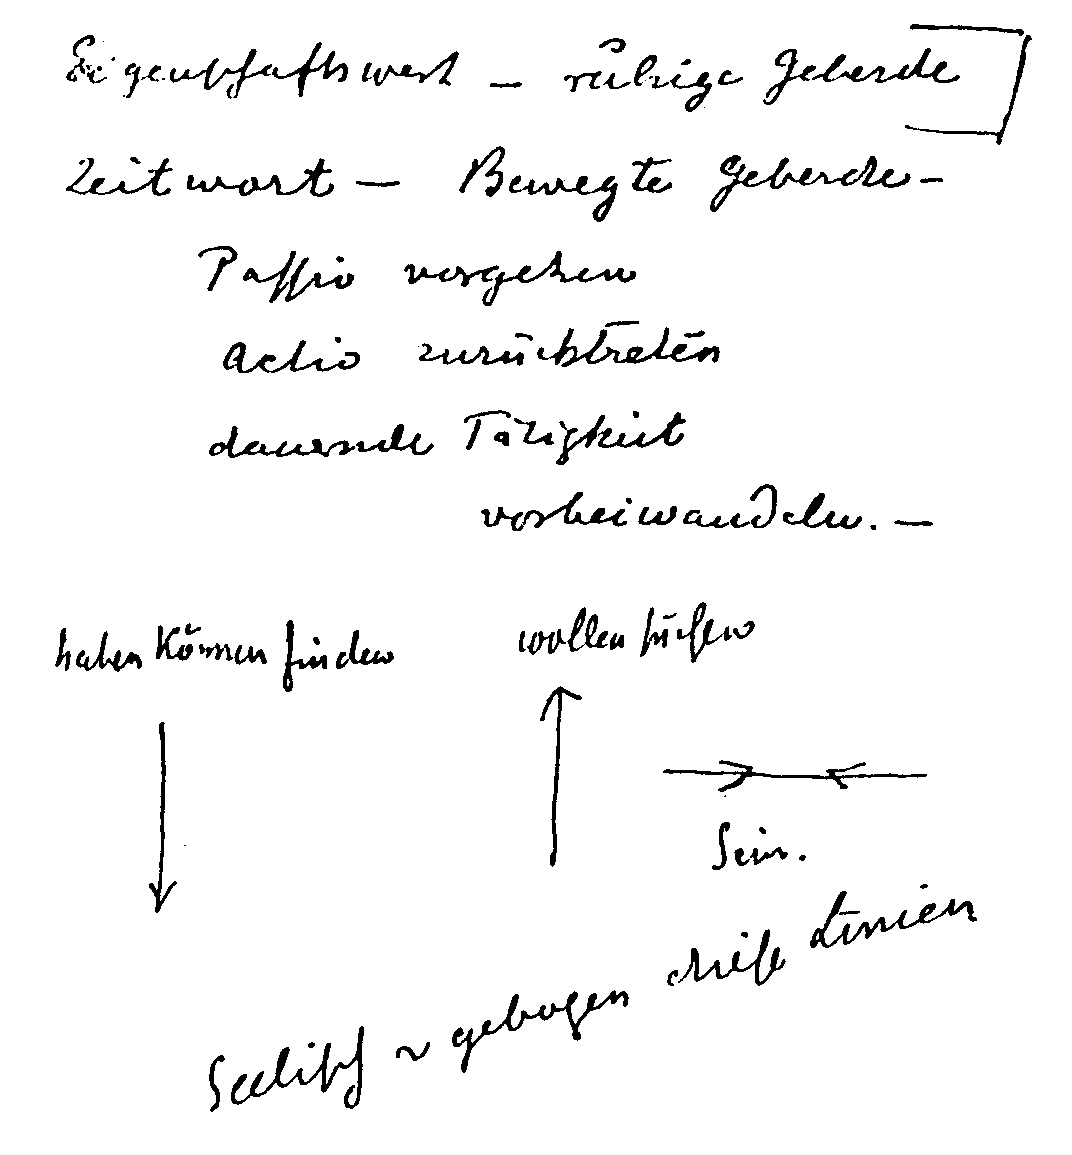 Eigenschaftswort – ruhige Geberde
Zeitwort – Bewegte Geberde –
Passio vorgehen
Actio zurücktreten
dauernde Tätigkeit
vorbeiwandeln. –
haben können finden
wollen suchen
Sein.
Seelisch ~ gebogen diese Linien